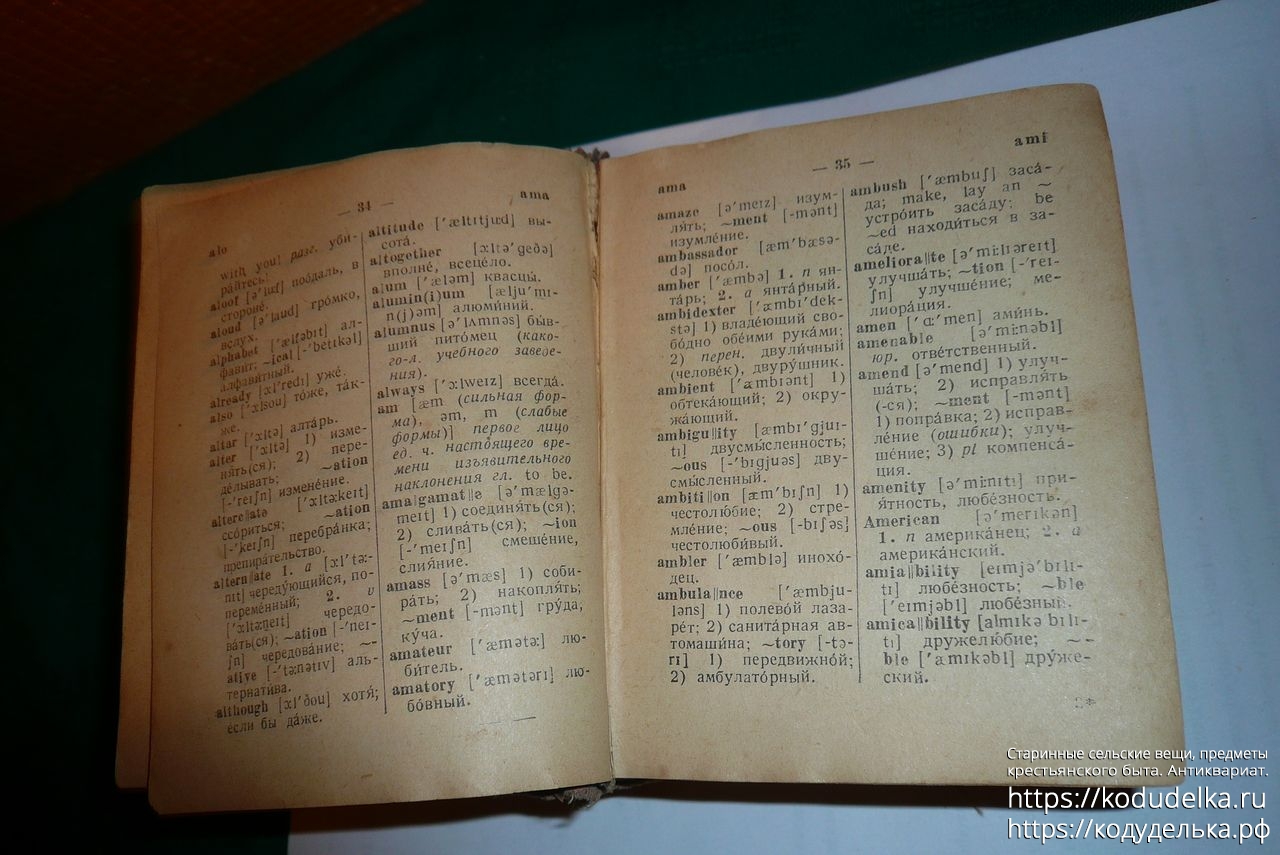 alo
— 34 —
ama
with you! разг. уби-
райтесь.
aloof [ə'lu:f] поо́даль, в
стороне́.
aloud [ə'laud] гро́мко,
вслух.
alphabet ['ælfəbɪt] ал-
фави́т; ~ical [-'betɪkəl]
алфави́тный.
already [ɔ:l'redɪ] уже́.
also ['ɔ:lsou] то́же, та́к-
же.
altar ['ɔ:ltə] алта́рь.
alter ['ɔ:ltə] 1) изме-
ня́ть(ся); 2) пере-
де́лывать; ~ation
[-'reɪʃn] измене́ние.
altercate ['ɔ:ltə:keɪt]
ссо́риться; ~ation
[-'keɪʃn] перебра́нка;
препира́тельство.
altern||ate 1. a [ɔ:l'tə:-
nɪt] череду́ющийся, по-
переме́нный; 2. v
['ɔ:ltə:neɪt] чередо-
ва́ть(ся); ~ation [-'neɪ-
ʃn] чередова́ние; ~-
ative [-'tə:nətɪv] аль-
тернати́ва.
although [ɔ:l'ðou] хотя́;
е́сли бы да́же.
altitude ['æltɪtju:d] вы-
сота́.
altogether [ɔ:ltə'geðə]
вполне́, всеце́ло.
alum ['æləm] квасцы́.
alumin(i)um [ælju'mɪ-
n(j)əm] алюми́ний.
alumnus [ə'lʌmnəs] бы́в-
ший пито́мец (како́-
го-л. уче́бного заведе́-
ния).
always ['ɔ:lweɪz] всегда́.
am [æm (сильная фор-
ма), əm, m (слабые
формы)] первое лицо
ед. ч. настоящего вре-
мени изъявительного
наклонения гл. to be.
amalgamat||e [ə'mælgə-
meɪt] 1) соединя́ть(ся);
2) слива́ть(ся); ~ion
[-'meɪʃn] смеше́ние,
слия́ние.
amass [ə'mæs] 1) соби-
ра́ть; 2) накопля́ть;
~ment [-mənt] гру́да,
ку́ча.
amateur ['æmətə:] лю-
би́тель.
amatory ['æmətərɪ] лю-
бо́вный.
ama
— 35 —
ami
amaze [ə'meɪz] изум-
ля́ть; ~ment [-mənt]
изумле́ние.
ambassador [æm'bæsə-
də] посо́л.
amber ['æmbə] 1. n ян-
та́рь; 2. a янта́рный.
ambidexter ['æmbɪ'dek-
stə] 1) владе́ющий сво-
бо́дно обе́ими рука́ми;
2) перен. двули́чный
(челове́к), двуру́шник.
ambient ['æmbɪənt] 1)
обтека́ющий; 2) окру-
жа́ющий.
ambigu||ity [æmbɪ'gjuɪ-
tɪ] двусмы́сленность;
~ous [-'bɪgjuəs] дву-
смы́сленный.
ambiti||on [æm'bɪʃn] 1)
честолю́бие; 2) стре-
мле́ние; ~ous [-bɪʃəs]
честолюби́вый.
ambler ['æmblə] инохо́-
дец.
ambula||nce ['æmbju-
ləns] 1) полево́й лаза-
ре́т; 2) санита́рная ав-
томаши́на; ~tory [-tə-
rɪ] 1) передвижно́й;
2) амбулато́рный.
ambush ['æmbuʃ] заса́-
да; make, lay an ~
устро́ить заса́ду; be
~ed находи́ться в за-
са́де.
ameliora||te [ə'mi:lɪəreɪt]
улучша́ть; ~tion [-'reɪ-
ʃn] улучше́ние; ме-
лиора́ция.
amen ['ɑ:'men] ами́нь.
amenable [ə'mi:nəbl]
юр. отве́тственный.
amend [ə'mend] 1) улуч-
ша́ть; 2) исправля́ть
(-ся); ~ment [-mənt]
1) попра́вка; 2) исправ-
ле́ние (ошибки); улуч-
ше́ние; 3) pl компенса́-
ция.
amenity [ə'mi:nɪtɪ] при-
я́тность, любе́зность.
American [ə'merɪkən]
1. n америка́нец; 2. a
америка́нский.
amia||bility [eɪmjə'bɪlɪ-
tɪ] любе́зность; ~ble
['eɪmjəbl] любе́зный.
amica||bility [æmɪkə'bɪlɪ-
tɪ] дружелю́бие; ~-
ble ['æmɪkəbl] дру́же-
ский.
2*
Старинные сельские вещи, предметы
крестьянского быта. Антиквариат.
https://kodudelka.ru
https://кодуделька.рф